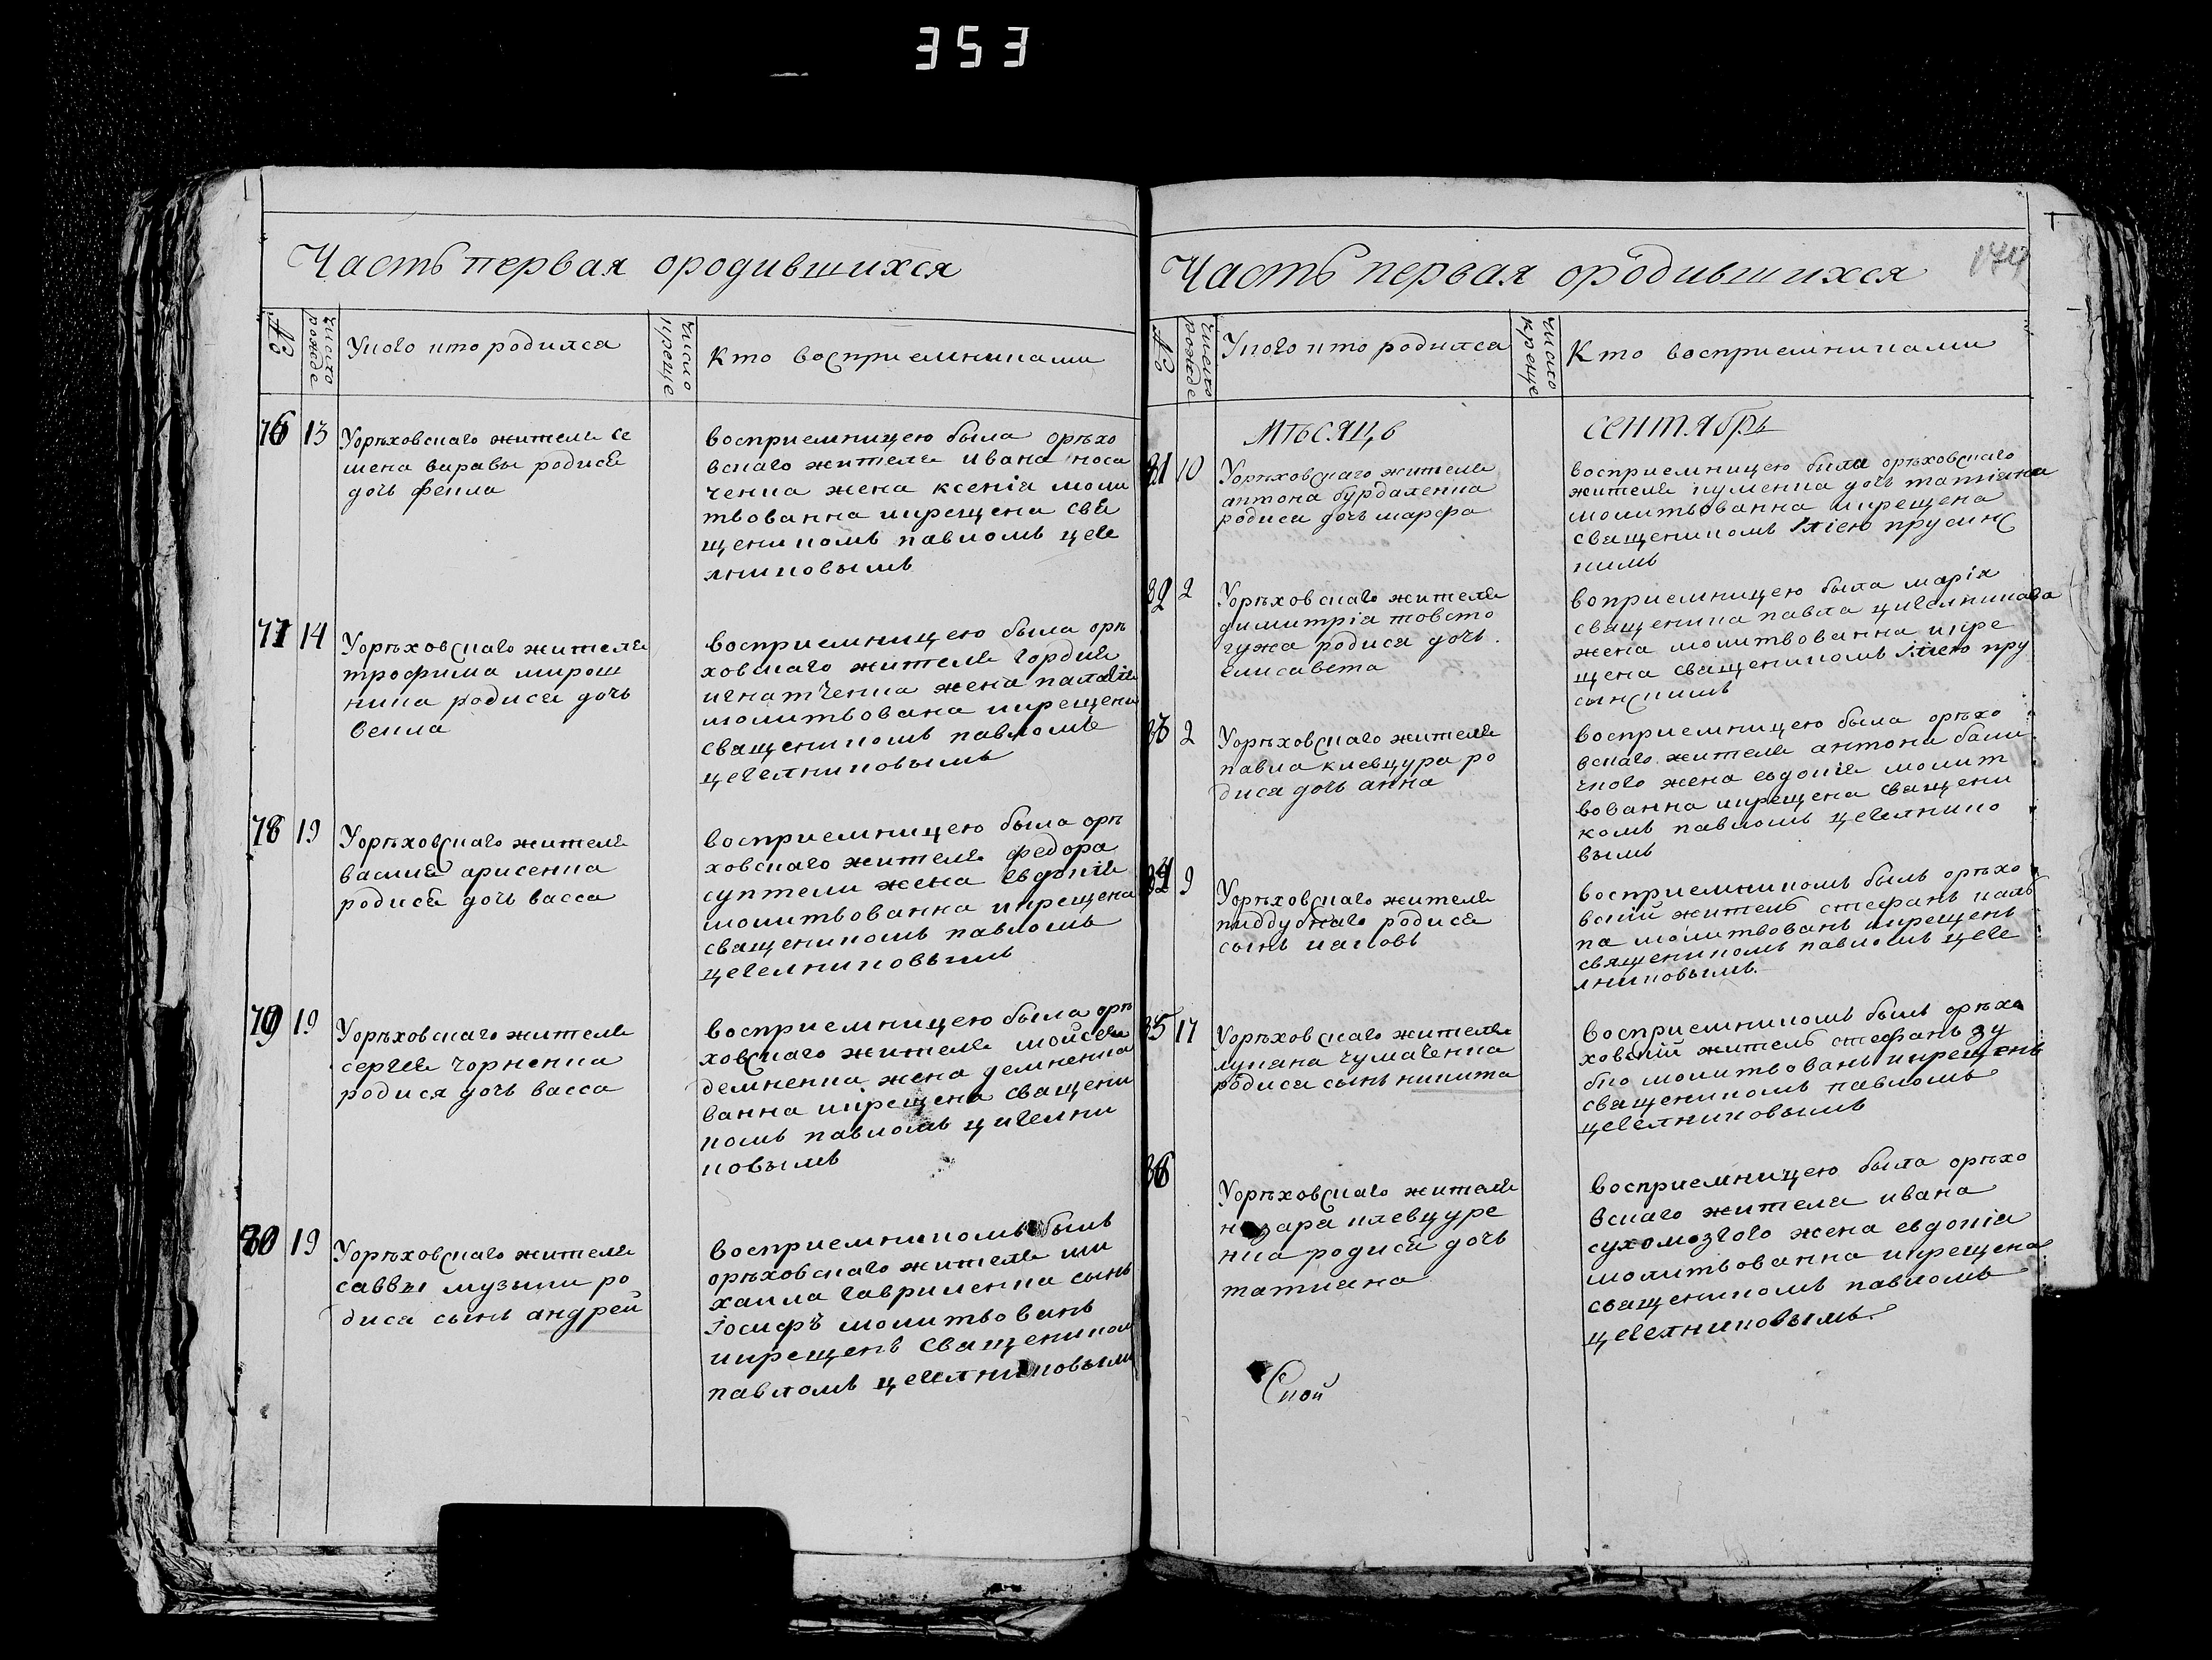 353
Часть первая ородившихся
№
число рожде
Укого кто родился
число креще
Кто восприемниками
76 13
Уорѣховскаго жителя се
мена варавы родися
дочь фекла
восприемницею была орѣхо
вскаго жителя ивана носа
ченка жена ксенія моли
твованна икрещена свя
щенникомъ павломъ цеге
лниковымъ
77 14
Уорѣховскаго жителя
трофима мирош
ника родися дочь
векла
восприемницею была орѣ
ховскаго жителя гордия
игнатченка жена палагія
молитвована икрещена
священикомъ павломъ
цегелниковымъ
78 19
Уорѣховскаго жителя
василя арисенка
родися дочь васса
восприемницею была орѣ
ховскаго жителя федора
суптели жена евдокія
молитвованна икрещена
священикомъ павломъ
цегелниковымъ
79 19
Уорѣховскаго жителя
сергея чорненка
родися дочь васса
восприемницею была орѣ
ховскаго жителя мойсея
демненка жена демненка
ванна икрещена священи
комъ павломъ цигелни
ковымъ
80 19
Уорѣховскаго жителя
саввы музыки ро
дися сынъ андрей
восприемникомъ былъ
орѣховскаго жителя ми
хаила гавриленка сынъ
іосифъ молитвованъ
икрещенъ священиком
павломъ цегелниковыми
Часть первая ородившихся
140
№
число рожде
Укого кто родился
число креще
Кто восприемниками
мѣсяцъ
сентябрь
81 10
Уорѣховскаго жителя
антона бурдаленка
родися дочь марфа
восприемницею была орѣховскаго
жителя куменка дочь татіяна
молитвованна икрещена
священикомъ Иліею прусинс
кимъ
82 2
Уорѣховскаго жителя
димитрія товсто
гужа родися дочь
елисавета
воприемницею была марія
священика павла цигелникова
жена молитвованна икре
щена священикомъ Иліею пру
сынскимъ
83 2
Уорѣховскаго жителя
павла клевцура ро
дися дочь анна
восприемницею была орѣхо
вскаго жителя антона бали
чного жена евдокія молит
вованна икрещена священи
комъ павломъ цегелнико
вымъ
84 9
Уорѣховскаго жителя
пиддубнаго родися
сынъ иаковъ
восприемникомъ былъ орѣхо
вскій житель стефанъ калѣ
ка молитвованъ икрещенъ
священикомъ павломъ цеге
лниковымъ
85 17
Уорѣховскаго жителя
лукана чумаченка
родися сынъ никита
восприемникомъ былъ орѣхо
ховскій житель стефанъ зу
бко молитвованъ икрещенъ
священикомъ павломъ
цегелниковымъ
86
Уорѣховскаго жителя
назара клевцуре
нка родися дочь
татиана
восприемницею была орѣхо
вскаго жителя ивана
сухомозгого жена евдокіа
молитвованна икрещена
священикомъ павломъ
цегелниковымъ.